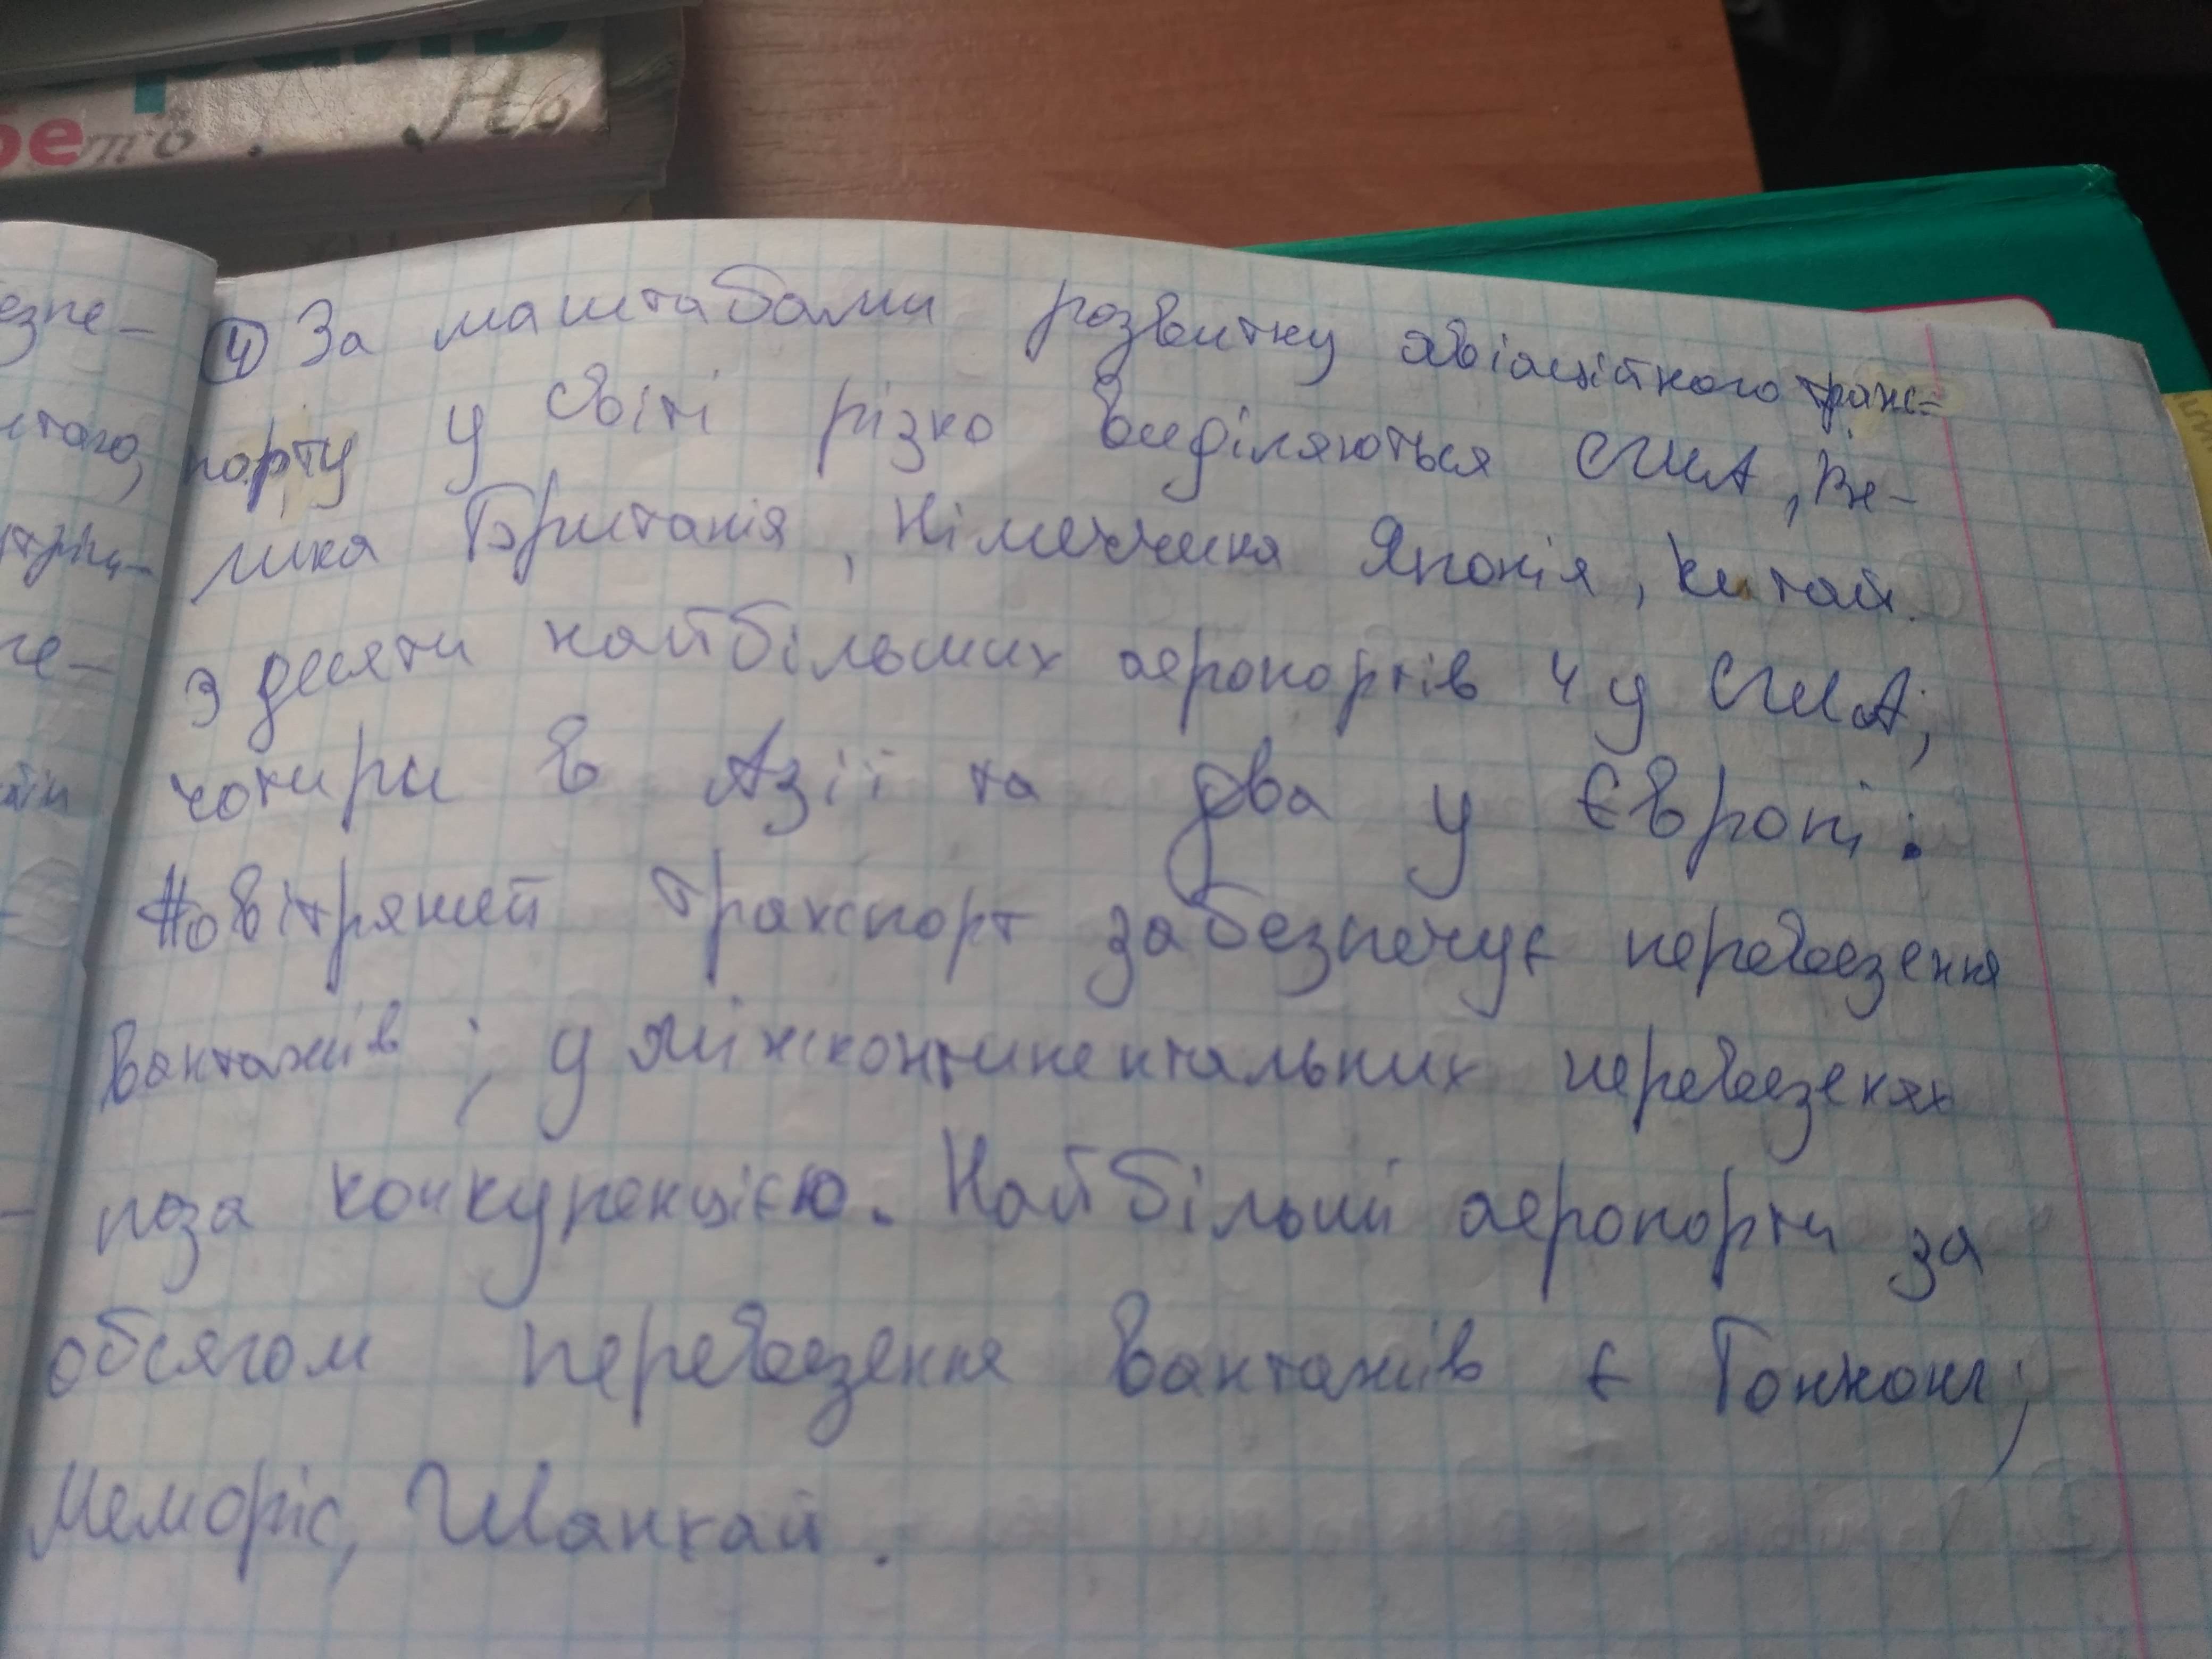 бе то . Но
④ За маштабами розвитку авіаційного транс=
порту у світі різко виділяються США, Ве-
лика Британія, Німеччина Японія, Китай.
З десяти найбільших аеропортів 4 у США;
чотири в Азії та два у Європі.
Повітряний транспорт забезпечує перевезення
вантажів; у міжконтинентальних перевезенях
поза конкуренцією. Найбільші аеропорти за
обсягом перевезення вантажів є Гонконг;
Меморіс, Шанхай.